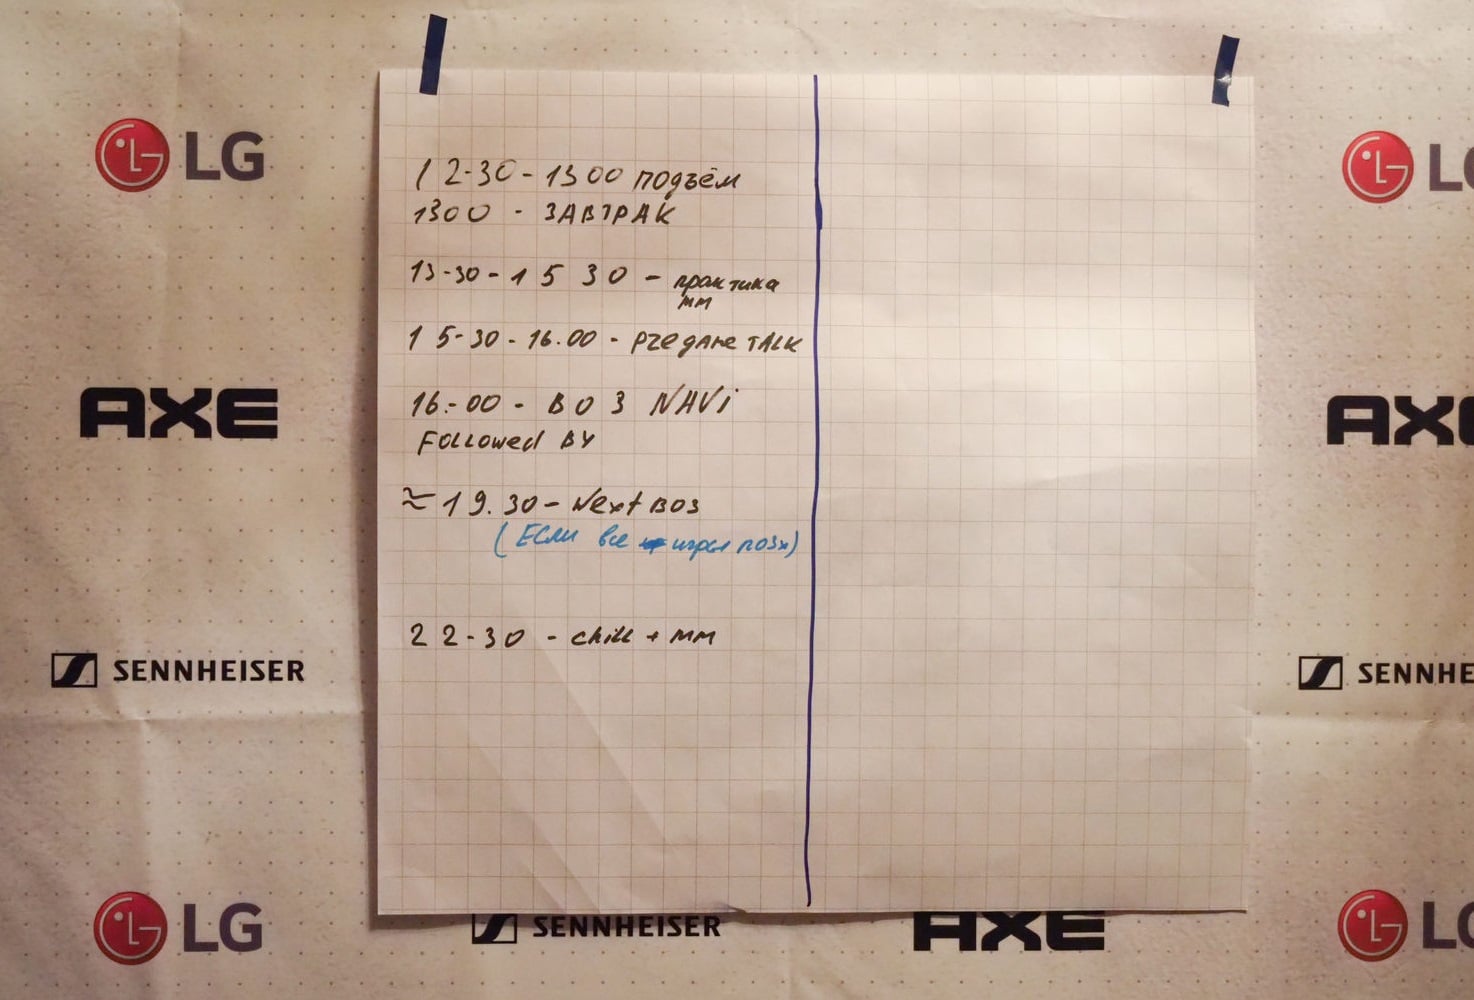 LG
LG
12-30-1300 подъём
1300 - ЗАВТРАК
13-30-1530 - практика
мм
15-30-16.00 - PREGAME TALK
AXE
AXE
16.-00 - BO3 NAVi
Followed BY
≈19.30 - Next BO3
(Если все игры поз)
22-30 - chill + мм
SENNHEISER
SENNHE
LG
SENNHEISER
AXE
LG